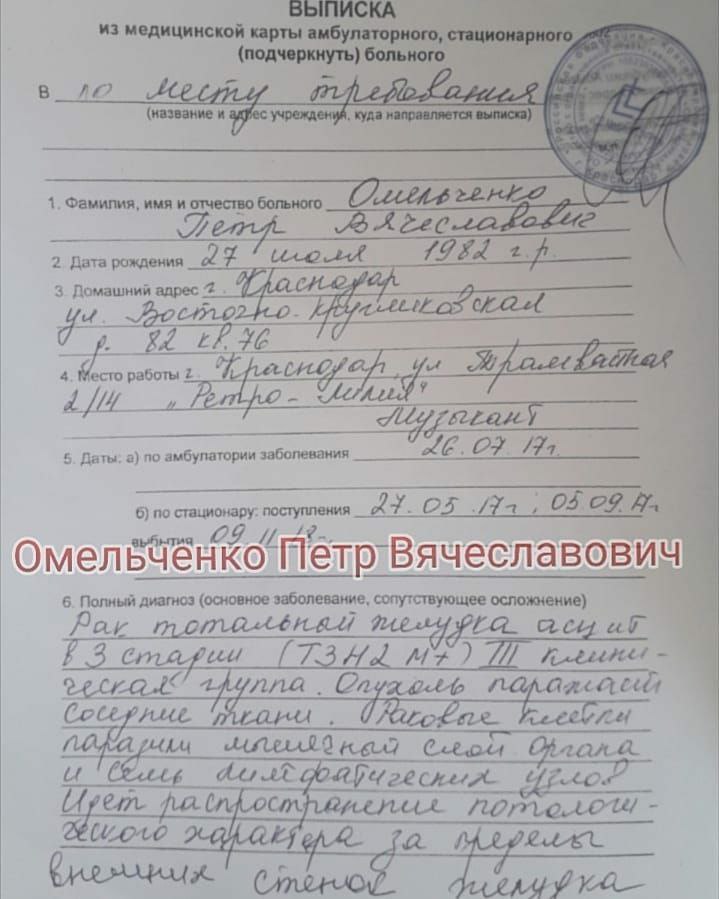 ВЫПИСКА
из медицинской карты амбулаторного, стационарного
(подчеркнуть) больного
в по месту требования
(название и адрес учреждения, куда направляется выписка)
1. Фамилия, имя и отчество больного Омельченко
Петр Вячеславович
2. Дата рождения 27 июля 1982 г.р.
3. Домашний адрес г. Краснодар
ул. Восточно-Кругликовская
д. 82 кв. 76
4. Место работы г. Краснодар, ул Трамвайная
2/14 "Ретро-Лилия"
Музыкант
5. Даты: а) по амбулатории заболевания 26.07.17г.
б) по стационару: поступления 27.05.17г; 05.09.17г.
выбытия 09.11.
Омельченко Петр Вячеславович
6. Полный диагноз (основное заболевание, сопутствующее осложнение)
Рак тотальный желудка асцит
в 3 стадии (Т3Н2 М+) III клини-
ческая группа. Опухоль паражасит
соседние ткани. Раковые клетки
паразили мышечный слой органа
и семь лимфатических узлов
Идет распространение потологи-
ческого характера за пределы
внешних стенок желудка